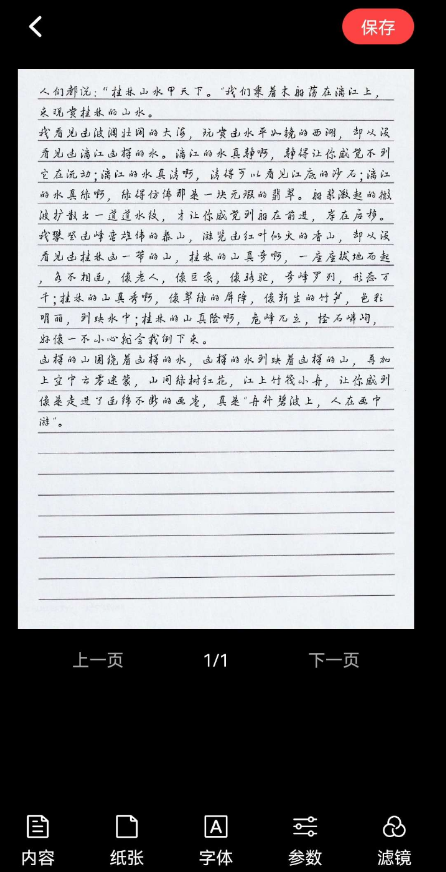 保存
人们都说："桂林山水甲天下。"我们乘着木船荡在漓江上，
来观赏桂林的山水。
我看见过波澜壮阔的大海，玩赏过水平如镜的西湖，却从没
看见过漓江这样的水。漓江的水真静啊，静得让你感觉不到
它在流动;漓江的水真清啊，清得可以看见江底的沙石;漓江
的水真绿啊，绿得仿佛那是一块无瑕的翡翠。船桨激起的微
波扩散出一道道水纹，才让你感觉到船在前进，岸在后移。
我攀登过峰峦雄伟的泰山，游览过红叶似火的香山，却从没
看见过桂林这一带的山，桂林的山真奇啊，一座座拔地而起
，各不相连，像老人，像巨象，像骆驼，奇峰罗列，形态万
千;桂林的山真秀啊，像翠绿的屏障，像新生的竹笋，色彩
明丽，倒映水中;桂林的山真险啊，危峰兀立，怪石嶙峋，
好像一不小心就会栽倒下来。
这样的山围绕着这样的水，这样的水倒映着这样的山，再加
上空中云雾迷蒙，山间绿树红花，江上竹筏小舟，让你感到
像是走进了连绵不断的画卷，真是"舟行碧波上，人在画中
游"。
上一页 1/1 下一页
内容 纸张 字体 参数 滤镜